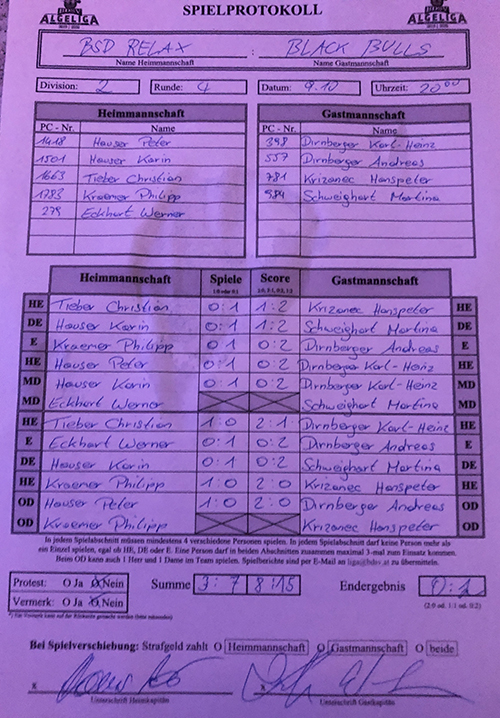 SPIELPROTOKOLL
ALGELIGA ALGELIGA
BSD RELAX : BLACK BULLS
Name Heimmannschaft Name Gastmannschaft
Division: 2 Runde: 4 Datum: 9.10 Uhrzeit: 20 00
Heimmannschaft Gastmannschaft
PC - Nr. Name PC - Nr. Name
1418 Hauser Peter 398 Dirnberger Karl-Heinz
1501 Hauser Karin 557 Dirnberger Andreas
1663 Tieber Christian 781 Krizanec Hanspeter
1783 Kraemer Philipp 984 Schweighart Martina
279 Eckhart Werner
Heimmannschaft Spiele Score Gastmannschaft
HE Tieber Christian 0:1 1:2 Krizanec Hanspeter HE
DE Hauser Karin 0:1 1:2 Schweighart Martina DE
E Kraemer Philipp 0:1 0:2 Dirnberger Andreas E
HE Hauser Peter 0:1 0:2 Dirnberger Karl-Heinz HE
MD Hauser Karin 0:1 0:2 Dirnberger Karl-Heinz MD
MD Eckhart Werner Schweighart Martina MD
HE Tieber Christian 1:0 2:1 Dirnberger Karl-Heinz HE
E Eckhart Werner 0:1 0:2 Dirnberger Andreas E
DE Hauser Karin 0:1 0:2 Schweighart Martina DE
HE Kraemer Philipp 1:0 2:0 Krizanec Hanspeter HE
OD Hauser Peter 1:0 2:0 Dirnberger Andreas OD
OD Kraemer Philipp Krizanec Hanspeter OD
In jedem Spielabschnitt müssen mindestens 4 verschiedene Personen spielen. In jedem Spielabschnitt darf keine Person mehr als
ein Einzel spielen, egal ob HE, DE oder E. Eine Person darf in beiden Abschnitten zusammen maximal 3-mal zum Einsatz kommen.
Beim OD kann auch 1 Herr und 1 Dame im Team spielen. Spielberichte sind per E-Mail an liga@bdsv.at zu übermitteln.
Protest: O Ja O Nein Summe 3:7 8:15 Endergebnis 0:2
Vermerk: O Ja O Nein (2:0 od. 1:1 od. 0:2)
Bei Spielverschiebung: Strafgeld zahlt O Heimmannschaft O Gastmannschaft O beide
x x
Unterschrift Heimkapitän Unterschrift Gastkapitän